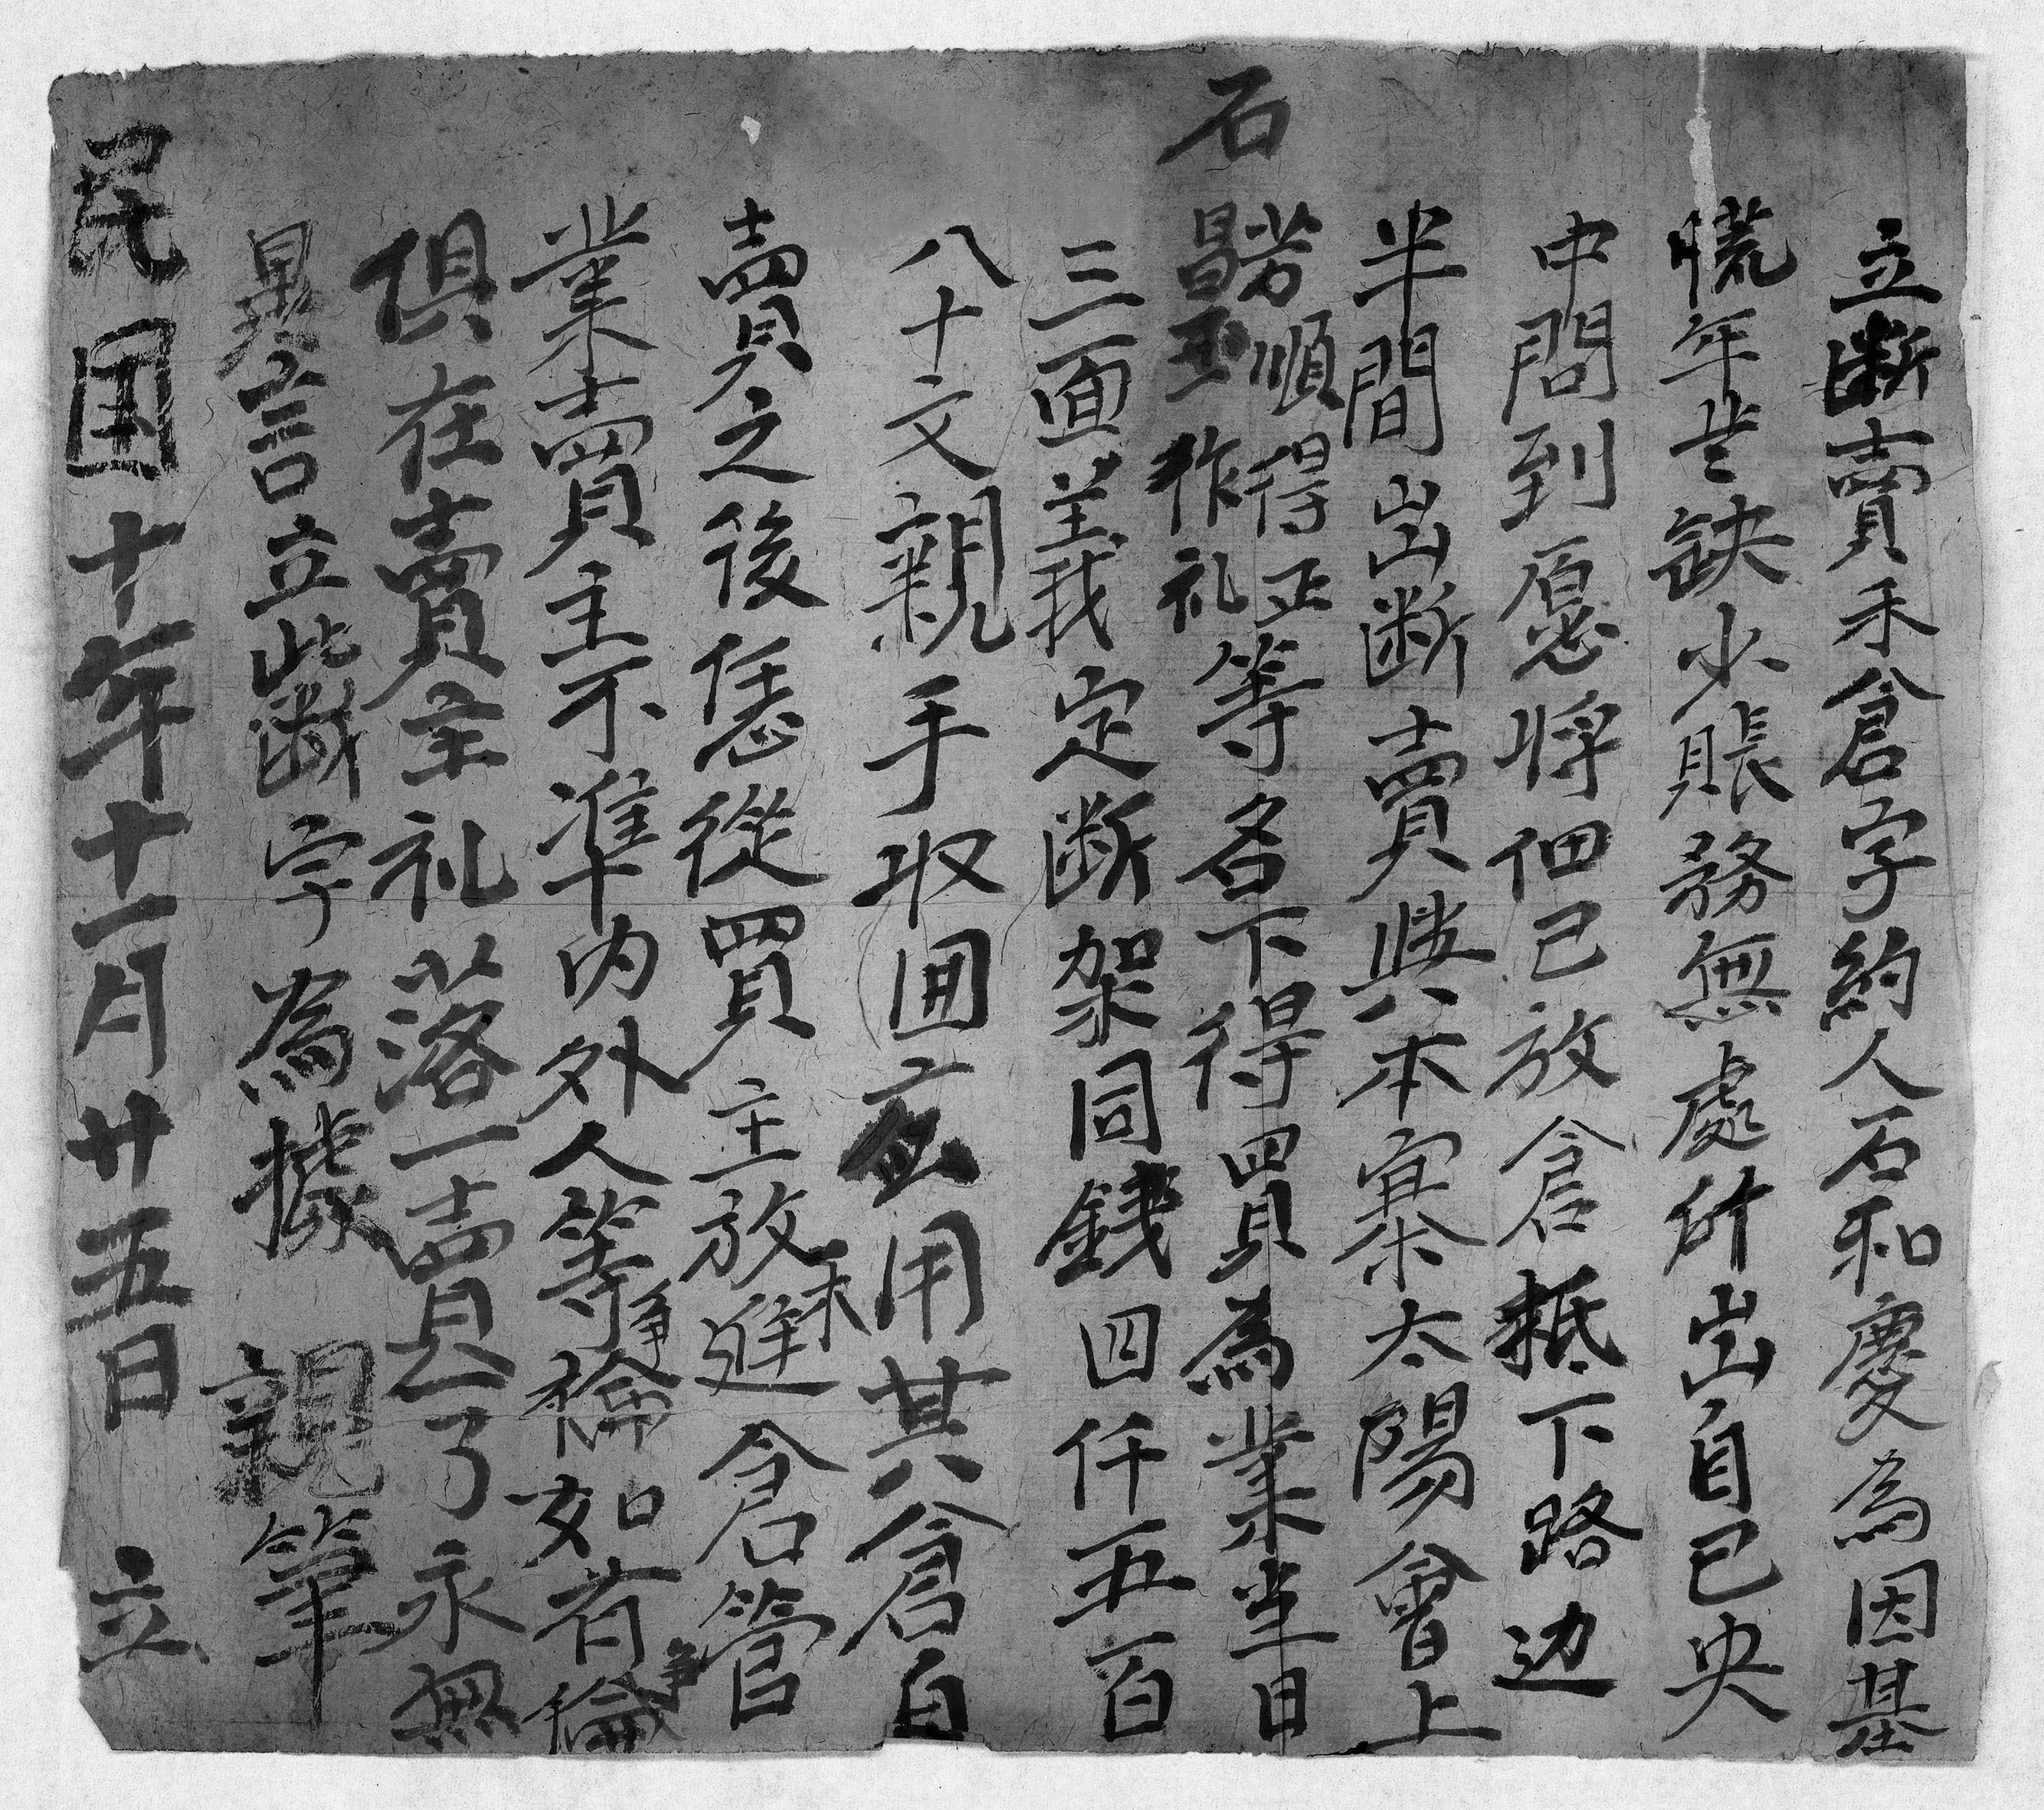 立断賣禾倉字約人石和慶為因基
慌年岁缺少賬務無處所出自己央
中問到愿将佃己放倉抵下路边
半間出断賣與本寨太陽會上
石芳順得正昌玉作礼等名下得買為業当日
三面義定断架同錢四仟五百
八十文親手収囬应用其倉自
賣之後恁從買主放進禾倉管
業賣主不准内外人等争倫如有争倫
俱在賣主礼落一賣一了永無
異言立此断字為據 親筆
民国十年十一月廿五日 立